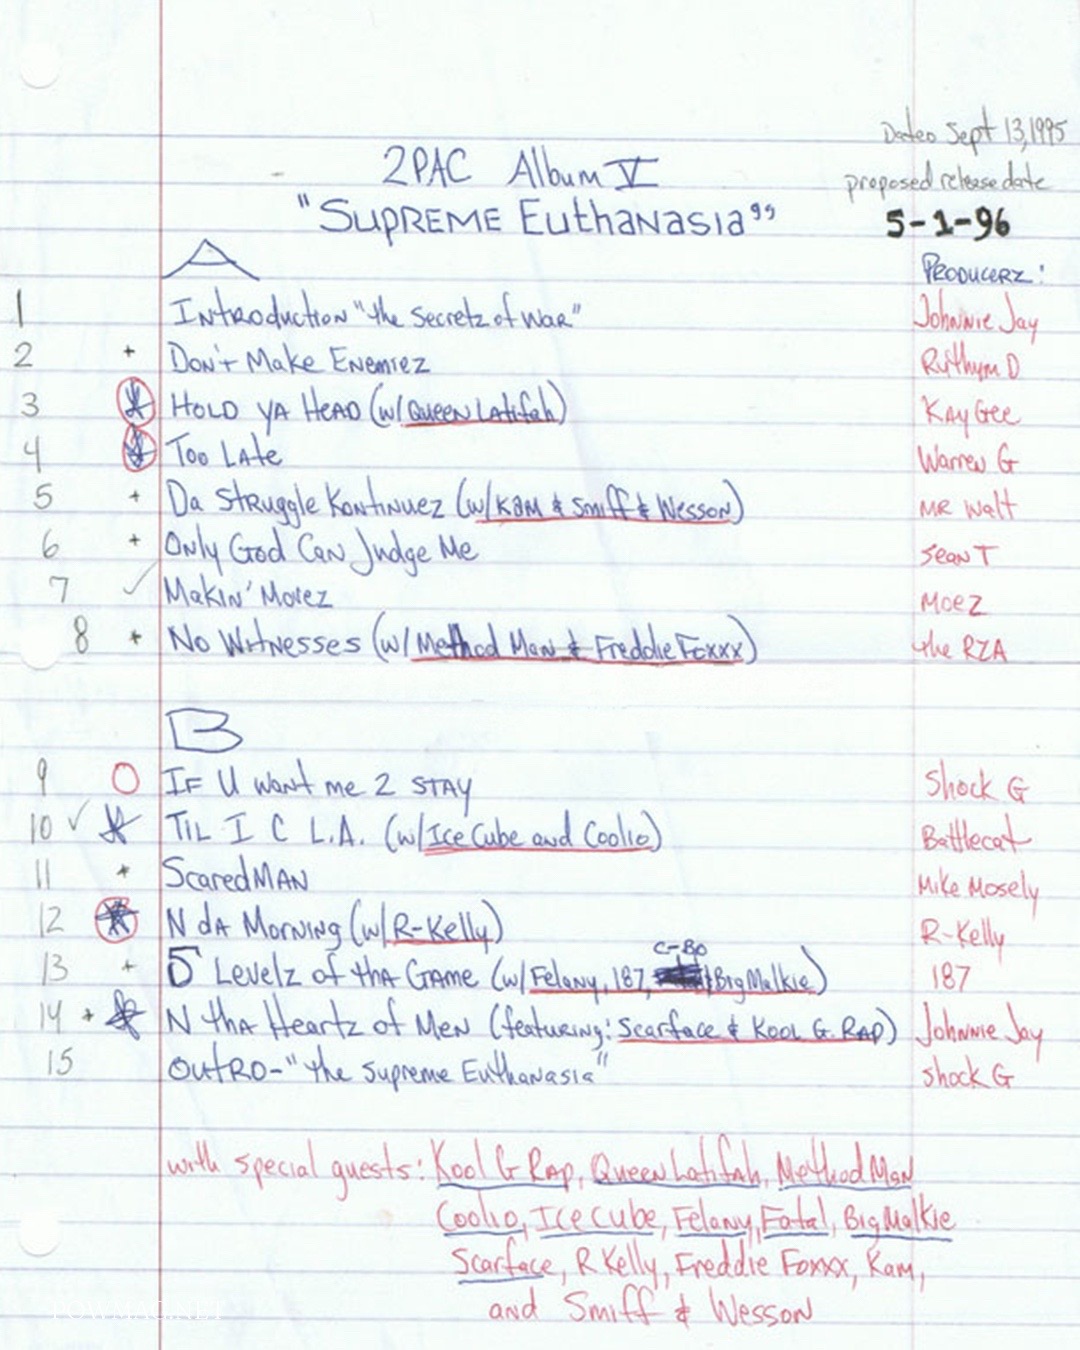 Dated Sept 13, 1995
2PAC Album V
proposed release date
"SUPREME EuthaNasia"
5-1-96
A
PRODUCERZ:
1 INtRoductioN "the Secretz of WAR" Johnnie Jay
2 + DON't Make ENemiez Rhythym D
3 HOLD YA HEAD (w/ QUEEN LAtifah) KAY GEE
4 TOO LAte Warren G
5 + DA StRuggle KontiNuez (w/ KAM & Smiff & WessoN) MR Walt
6 + ONly God CAN Judge Me SeaN T
7 ✓ MakiN' Movez MOEZ
8 + NO WitNesses (w/ Method MaN & Freddie Foxxx) the RZA
B
9 O IF U want me 2 STAY Shock G
10 ✓ TIL I C L.A. (w/ Ice Cube and Coolio) Battlecat
11 + ScaredMAN Mike Mosely
12 N dA MoRNiNg (w/ R-Kelly) R-Kelly
C-BO
13 + 5 Levelz of thA GAME (w/ Felony, 187, & Big Malkie) 187
14 + N thA Heartz of MeN (featuring: Scarface & Kool G. RAP) Johnnie Jay
15 OUtRO-"the Supreme EuthaNasia" Shock G
with special guests: Kool G RAP, Queen Latifah, Method Man
Coolio, Ice Cube, Felony, Fatal, Big Malkie
Scarface, R Kelly, Freddie Foxxx, Kam,
and Smiff & Wesson